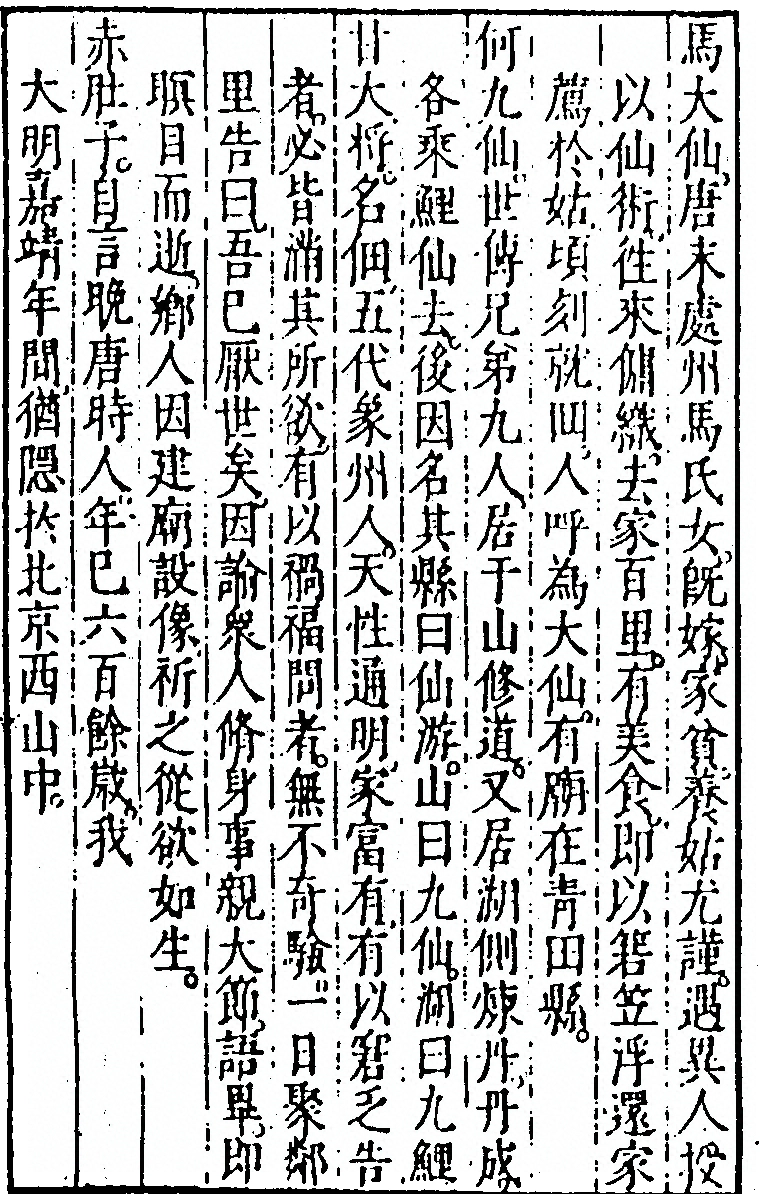 馬大仙。唐末處州馬氏女。旣嫁。家貧。養姑尤謹。遇異人授
以仙術。往來傭織。去家百里。有美食。卽以箬笠浮還家
薦於姑。頃刻就回。人呼為大仙。有廟在青田縣。
何九仙。世傳兄弟九人。居于山修道。又居湖側煉丹。丹成。
各乘鯉仙去。後因名其縣曰仙游。山曰九仙。湖曰九鯉
甘大將。名佃。五代象州人。天性通明。家富有。有以窘乏告
者。必皆滿其所欲。有以禍福問者。無不奇驗。一日聚鄰
里告曰。吾已厭世矣。因諭衆人脩身事親大節。語畢。即
瞑目而逝。鄉人因建廟設像祈之。從欲如生。
赤肚子。自言晚唐時人。年已六百餘歲。我
大明嘉靖年間。猶隱於北京西山中。